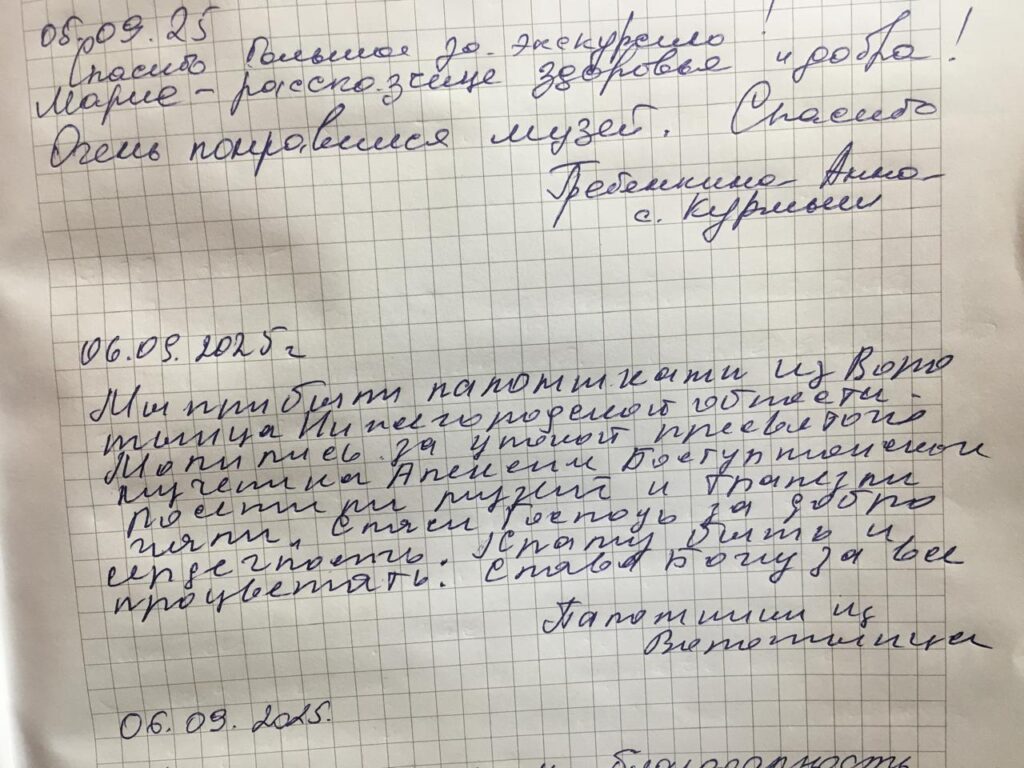 05.09.25
Спасибо большое за экскурсию!
Марие - рассказчице здоровья и добра!
Очень понравился музей. Спасибо
Гребенкина Анна
с. Курмыш
06.09.2025 г
Мы прибыли паломниками из Воро
тынца Нижегородской области.
Молились за
мученика
посетили музей и трапезни
чали. Спаси Господь за добро
сердечность. Храму быть и
процветать. Слава Богу за все
Паломники из
06.09.2025.
и благодарность